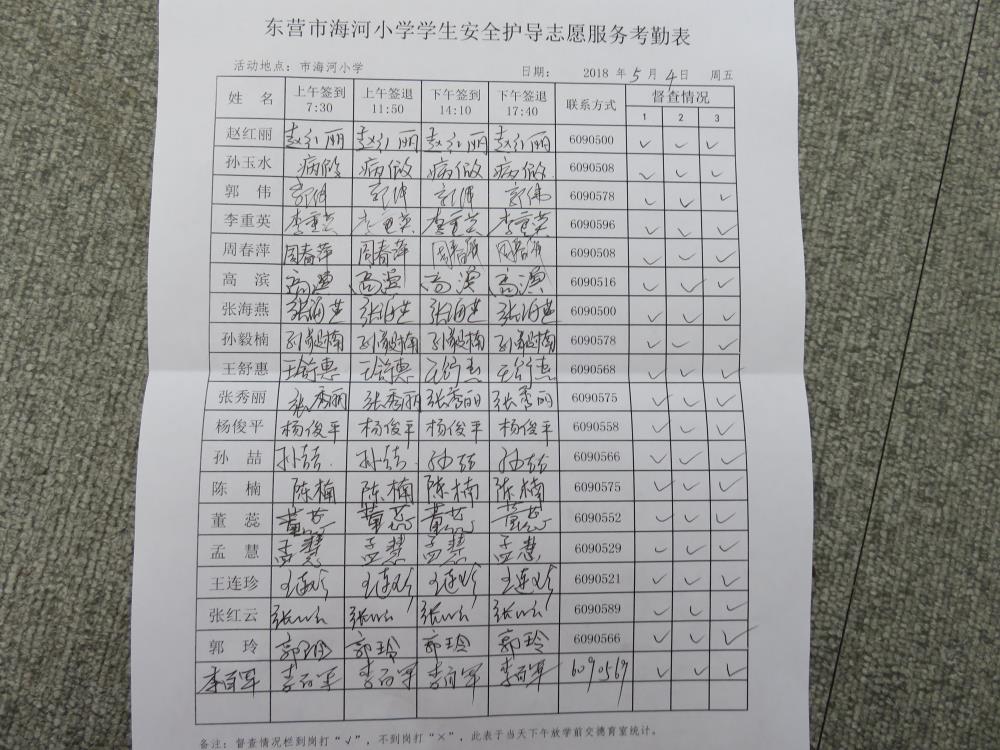 东营市海河小学学生安全护导志愿服务考勤表
活动地点：市海河小学 日期： 2018 年 5 月 4 日 周五
姓 名 上午签到 7:30 上午签退 11:50 下午签到 14:10 下午签退 17:40 联系方式 督查情况 1 2 3
赵红丽 赵红丽 赵红丽 赵红丽 赵红丽 6090500 ✓ ✓ ✓
孙玉水 病假 病假 病假 病假 6090508 ✓ ✓ ✓
郭 伟 郭伟 郭伟 郭伟 郭伟 6090578 ✓ ✓ ✓
李重英 李重英 李重英 李重英 李重英 6090596 ✓ ✓ ✓
周春萍 周春萍 周春萍 周春萍 周春萍 6090508 ✓ ✓ ✓
高 滨 高滨 高滨 高滨 高滨 6090516 ✓ ✓ ✓
张海燕 张海燕 张海燕 张海燕 张海燕 6090500 ✓ ✓ ✓
孙毅楠 孙毅楠 孙毅楠 孙毅楠 孙毅楠 6090578 ✓ ✓ ✓
王舒惠 王舒惠 王舒惠 王舒惠 王舒惠 6090568 ✓ ✓ ✓
张秀丽 张秀丽 张秀丽 张秀丽 张秀丽 6090575 ✓ ✓ ✓
杨俊平 杨俊平 杨俊平 杨俊平 杨俊平 6090558 ✓ ✓ ✓
孙 喆 孙喆 孙喆 孙喆 孙喆 6090566 ✓ ✓ ✓
陈 楠 陈楠 陈楠 陈楠 陈楠 6090575 ✓ ✓ ✓
董 蕊 董蕊 董蕊 董蕊 董蕊 6090552 ✓ ✓ ✓
孟 慧 孟慧 孟慧 孟慧 孟慧 6090529 ✓ ✓ ✓
王连珍 王连珍 王连珍 王连珍 王连珍 6090521 ✓ ✓ ✓
张红云 张红云 张红云 张红云 张红云 6090589 ✓ ✓ ✓
郭 玲 郭玲 郭玲 郭玲 郭玲 6090566 ✓ ✓ ✓
李百军 李百军 李百军 李百军 李百军 6090567 ✓ ✓ ✓
备注：督查情况栏到岗打“√”，不到岗打“×”，此表于当天下午放学前交德育室统计。